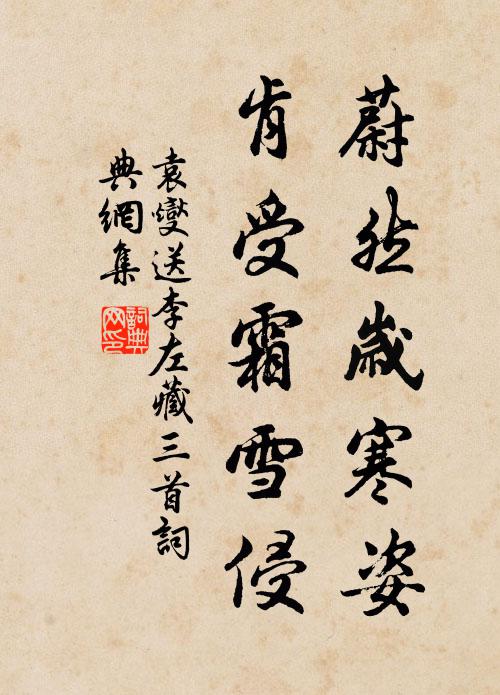 蔚然歲寒姿
肯受霜雪侵
袁燮送李左藏三首詞
典網集
詞典
网印